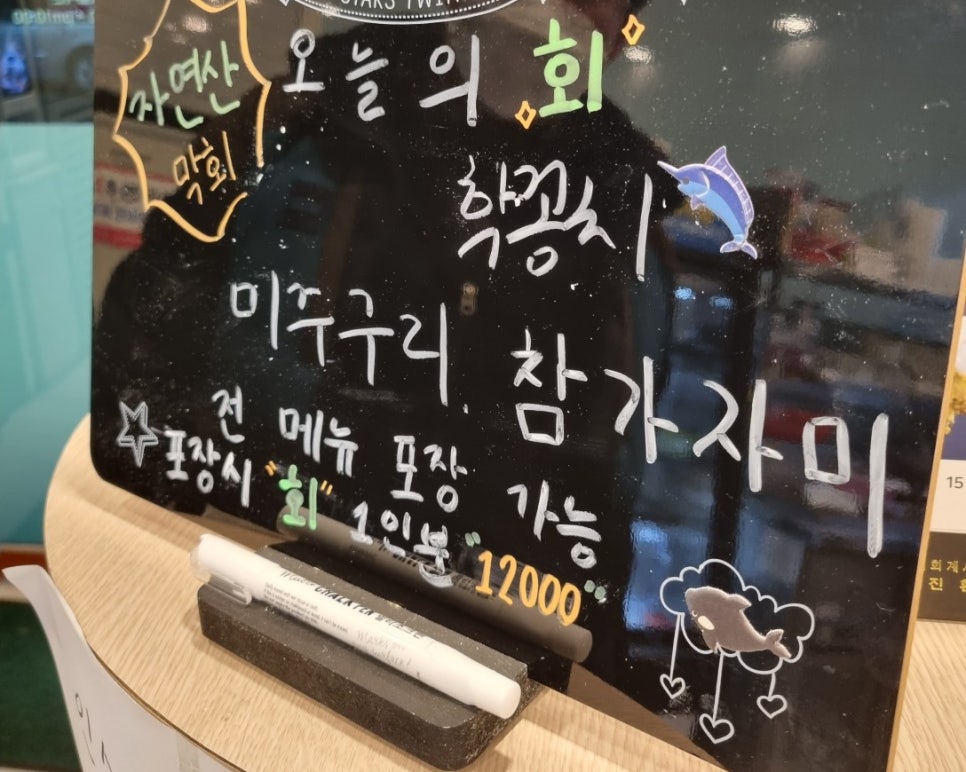 STARS TWIN
자연산
막회
오늘의 회
학꽁치
미주구리
참가자미
전 메뉴 포장 가능
포장시 "회" 1인분 "12000"
15
회계
진